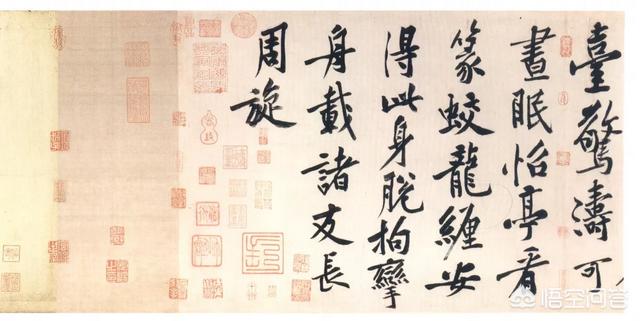 臺驚濤可
晝眠怡亭看
篆蛟龍纏安
得此身脫拘攣
舟載諸友長
周旋
悟空问答